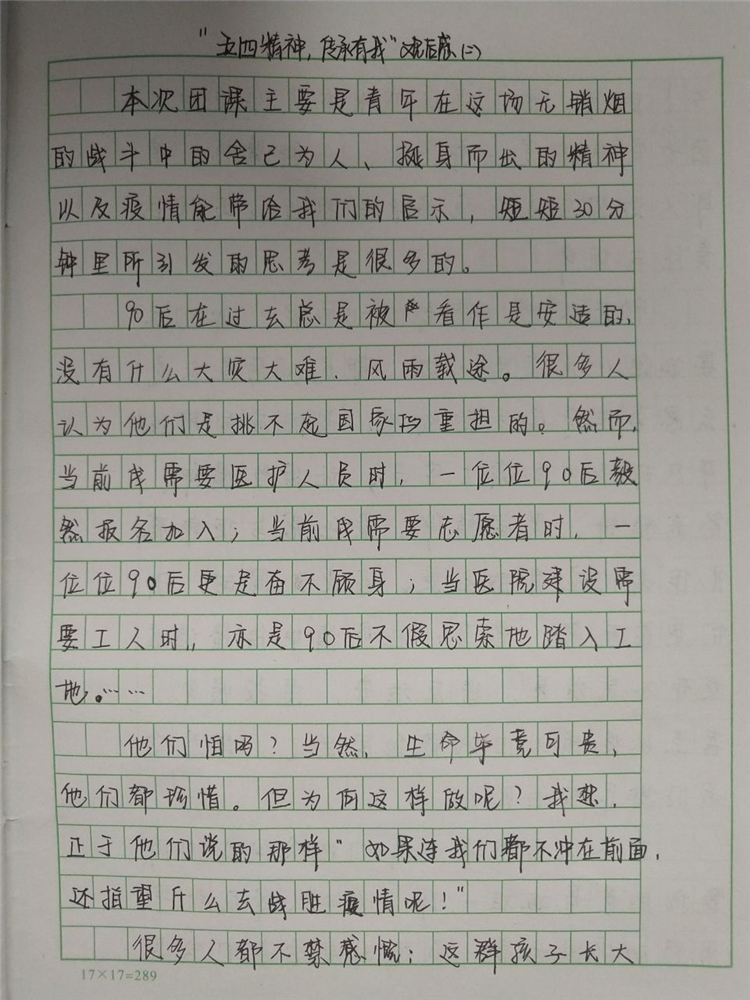 "五四精神，传承有我"观后感(二)
本次团课主要是青年在这场无销烟
的战斗中的舍己为人、挺身而出的精神
以及疫情能带给我们的启示，短短30分
钟里所引发的思考是很多的。
90后在过去总是被看作是安逸的，
没有什么大灾大难、风雨载途。很多人
认为他们是挑不起国家的重担的。然而，
当前线需要医护人员时，一位位90后毅
然报名加入；当前线需要志愿者时，一
位位90后更是奋不顾身；当医院建设需
要工人时，亦是90后不假思索地踏入工
地。……
他们怕吗？当然，生命毕竟可贵，
他们都珍惜。但为何这样做呢？我想，
正于他们说的那样"如果连我们都不冲在前面，
还指望什么去战胜疫情呢！"
很多人都不禁感慨：这群孩子长大
17×17=289